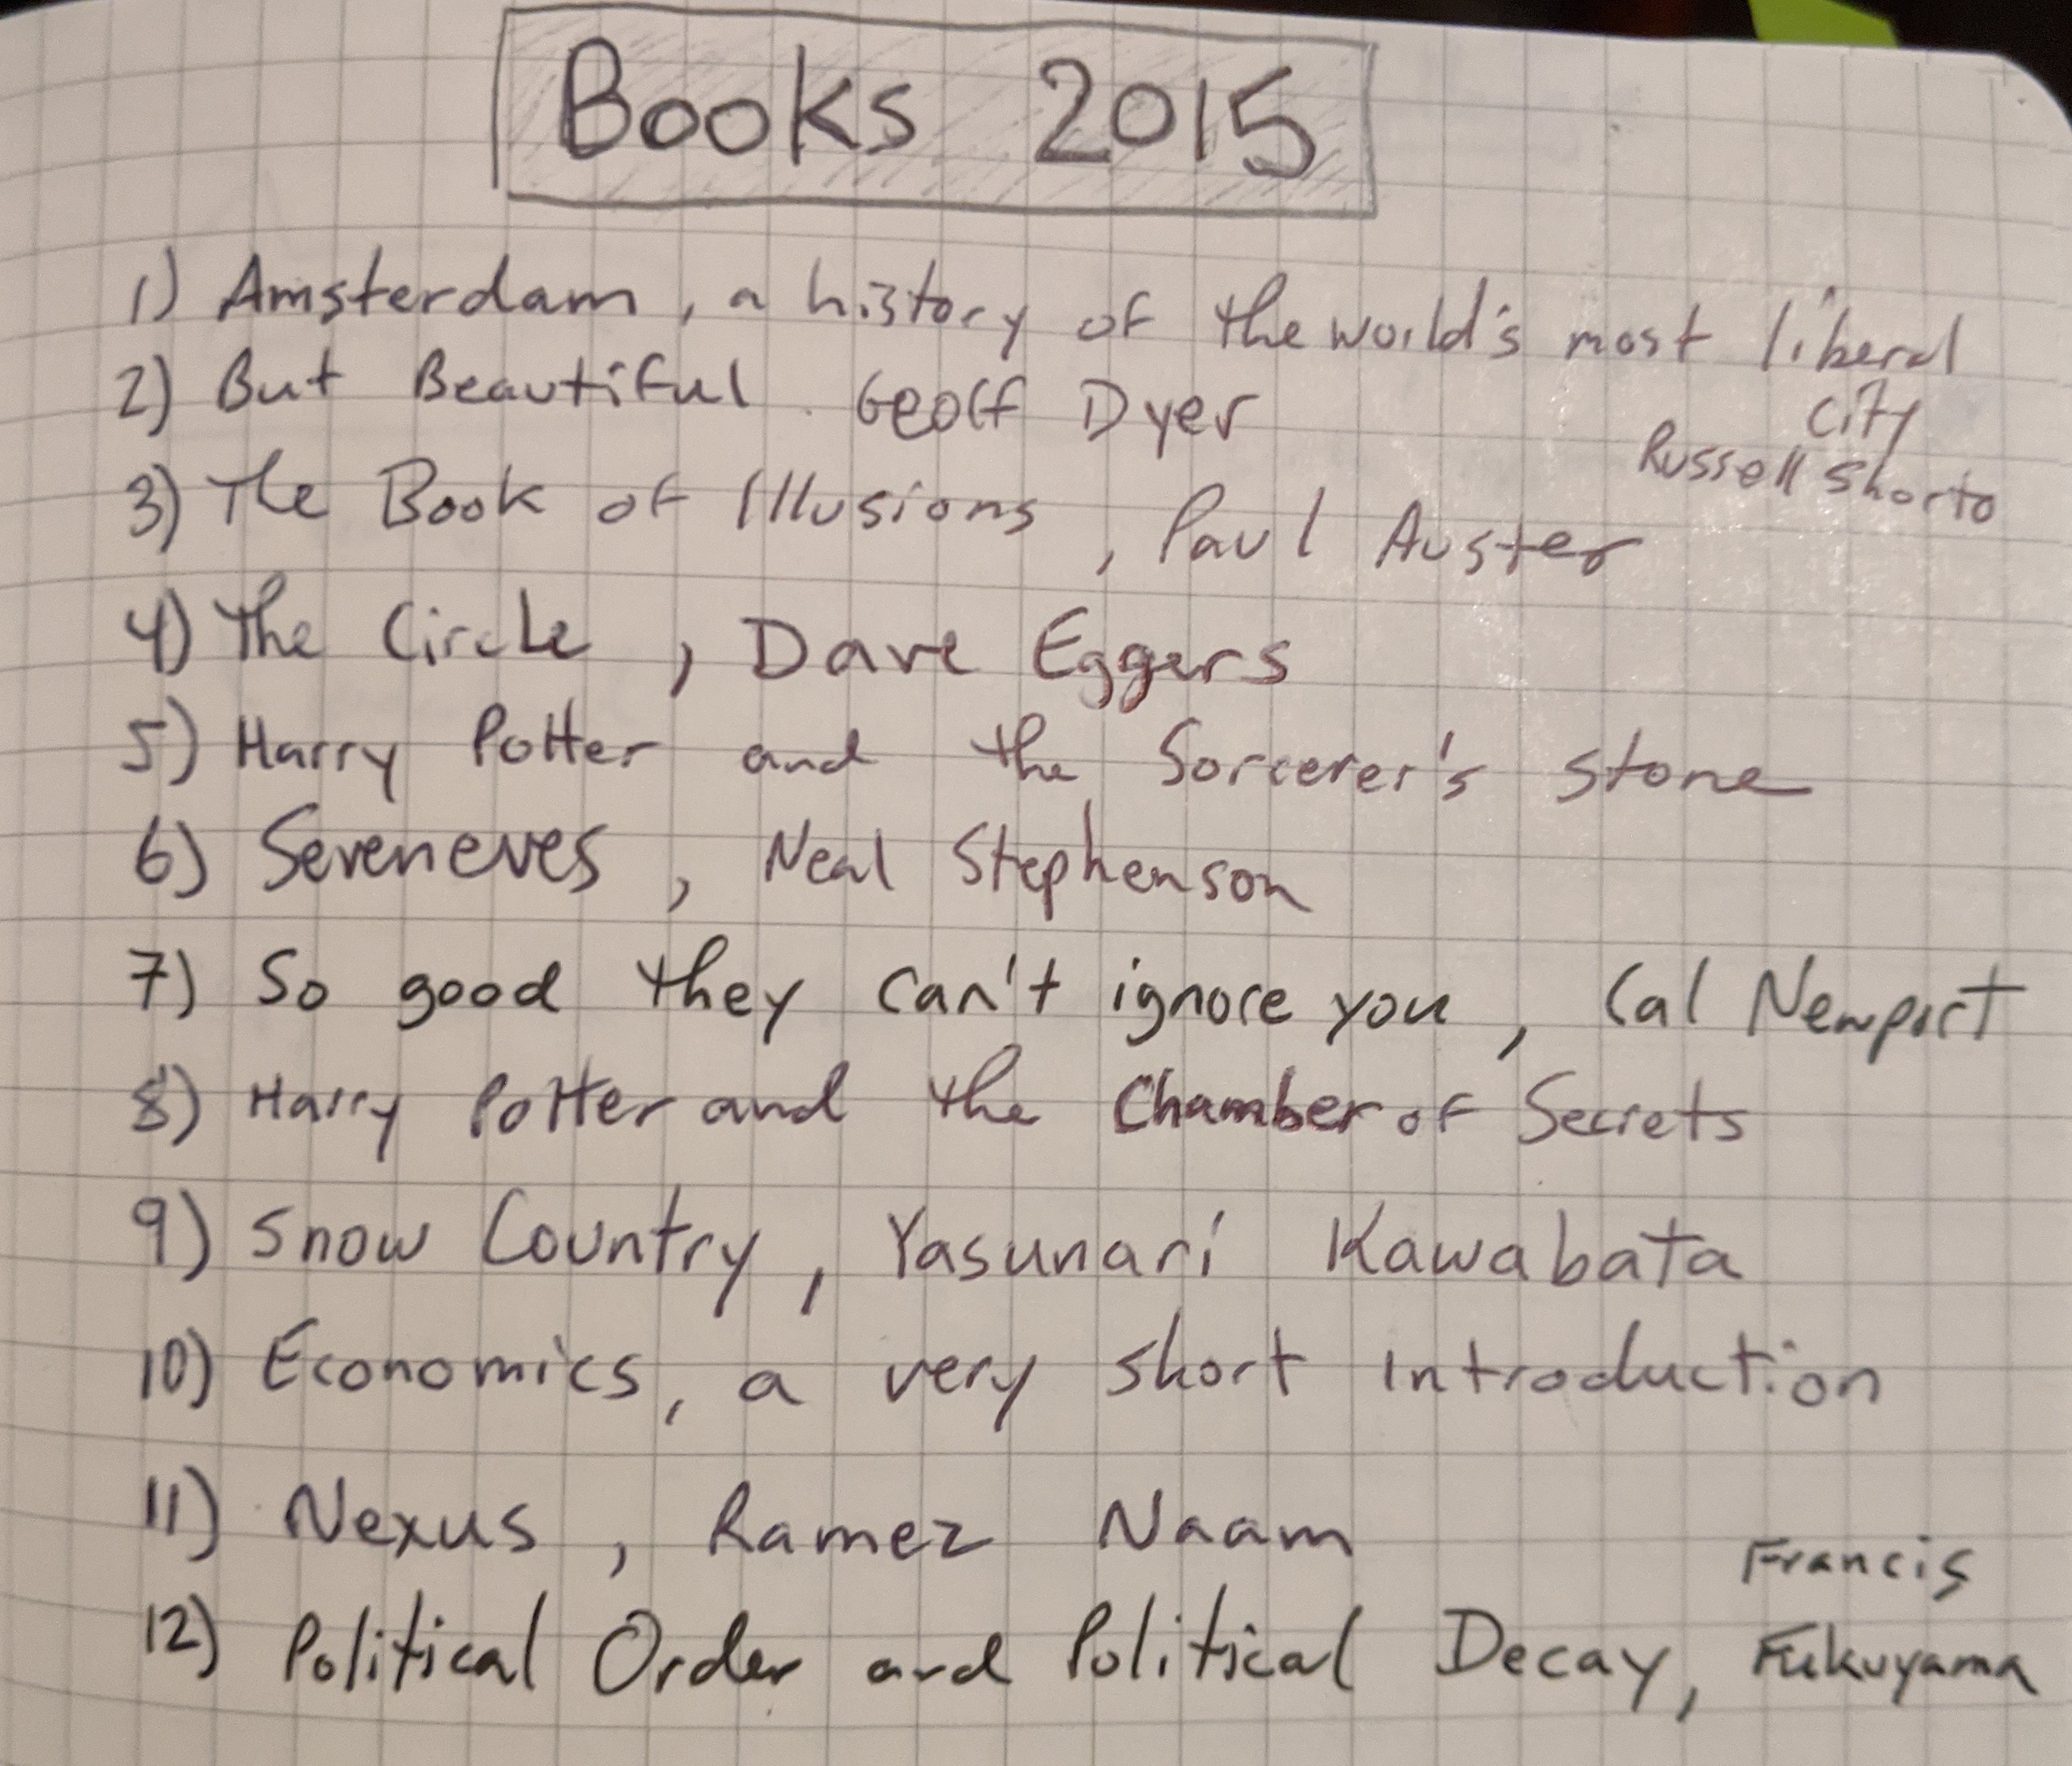 Books 2015
1) Amsterdam, a history of the world's most liberal
city
Russell Shorto
2) But Beautiful. Geoff Dyer
3) The Book of Illusions, Paul Auster
4) The Circle, Dave Eggers
5) Harry Potter and the Sorcerer's stone
6) Seveneves, Neal Stephenson
7) So good they can't ignore you, Cal Newport
8) Harry Potter and the Chamber of Secrets
9) Snow Country, Yasunari Kawabata
10) Economics, a very short introduction
11) Nexus, Ramez Naam
12) Political Order and Political Decay, Francis
Fukuyama